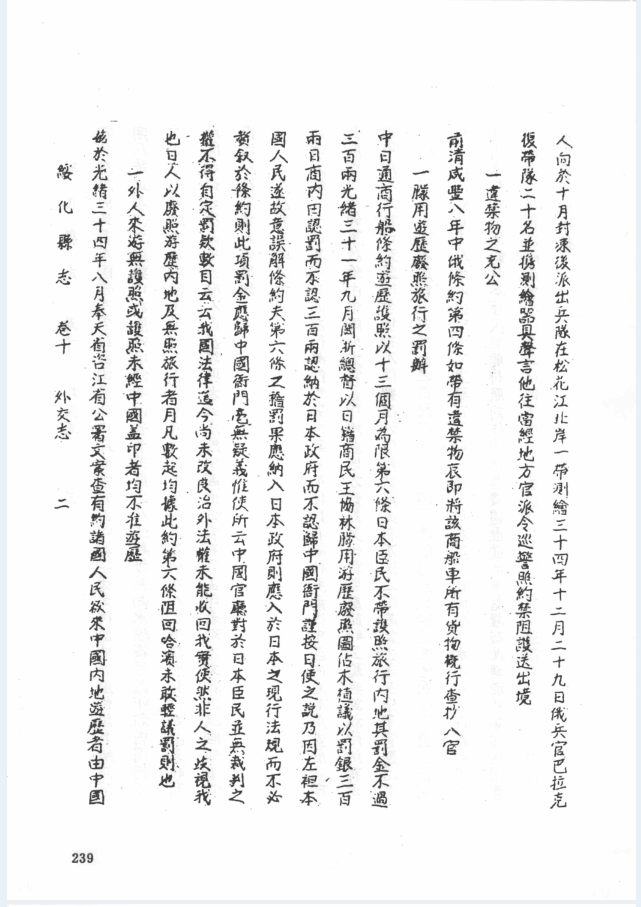 人向於十月封凍後派出兵隊在松花江北岸一帶測繪三十四年十二月二十九日俄兵官巴拉克
復帶隊二十名並携測繪器具聲言他往當經地方官派令巡警照約禁阻護送出境
一違禁物之充公
前清咸豐八年中俄條約第四條如帶有違禁物辰即將該商船車所有貨物槪行查抄入官
一朦用遊歷廢照旅行之罰辦
中日通商行船條約遊歷護照以十三個月為限第六條日本臣民不帶護照旅行內地其罰金不過
三百兩光緒三十一年九月閩浙總督以日籍商民王 林朦用游歷廢照圖佔木植議以罰銀三百
兩日商內因認罰而不認三百兩認納於日本政府而不認歸中國衙門謹按日使之說乃因左袒本
國人民遂故意誤解條約夫第六條之 罰果應納入日本政府則應入於日本之現行法規而不必
贅叙於條約則此項罰金應歸中國衙門毫無疑義惟使所云中國官廳對於日本臣民並無裁判之
權不得自定罰欵數目云云我國法律迄今尚未改良治外法權未能收回我實使然非人之歧視我
也日人以廢照游歷內地及無照旅行者月凡數起均據此約第六條阻回哈濱未敢輕議罰則也
一外人來游無護照或護照未經中國盖印者均不准遊歷
於光緒三十四年八月奉天省咨江省公署文案查有約諸國人民欲來中國內地遊歷者由中國
綏化縣志 卷十 外交志 二
239